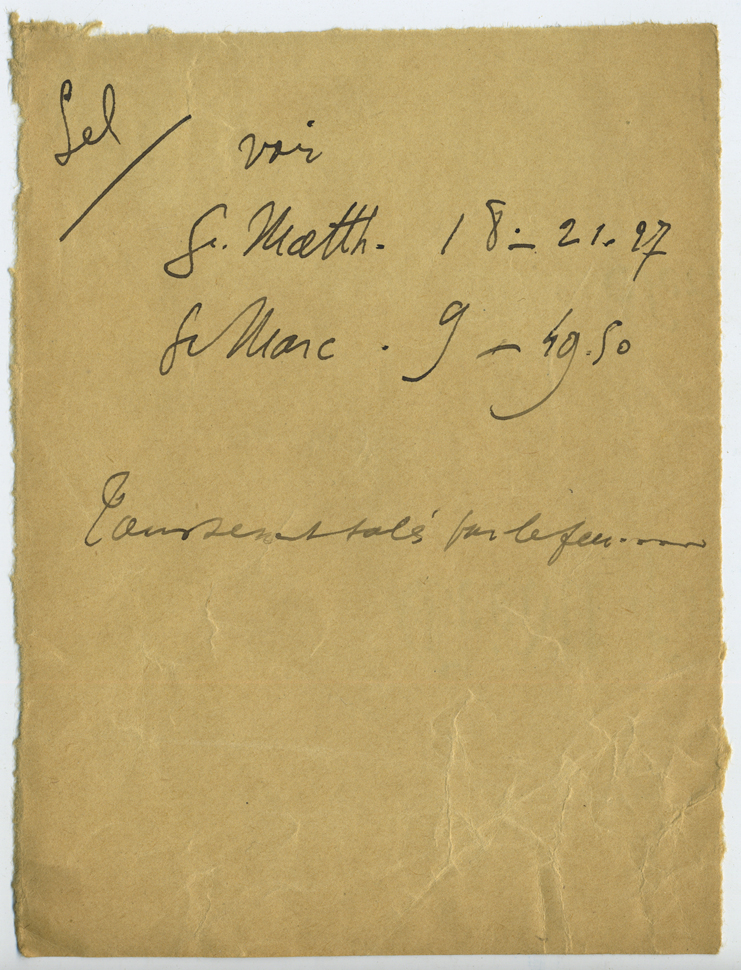 Sel / voir
St. Matth. 18 – 21.27
St Marc . 9 – 49.50
Tous seront salés par le feu.....